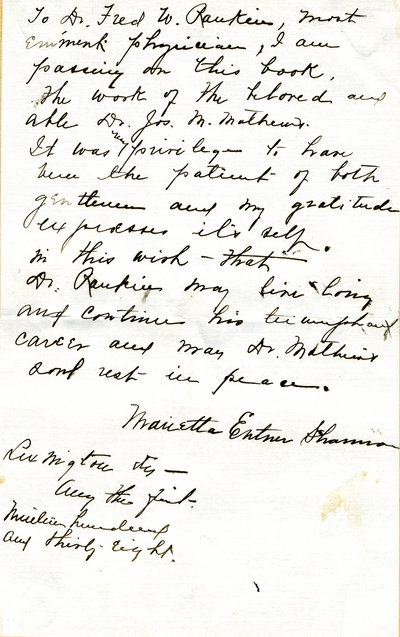 To Dr. Fred W. Rankin, most
eminent physician, I am
passing on this book,
the work of the beloved and
able Dr. Jos. M. Mathews.
It was my privilege to have
been the patient of both
gentlemen and my gratitude
expresses it's self
in this wish - that
Dr. Rankin may live long
and continue his triumphant
career and may Dr. Mathews
soul rest in peace.
Marietta Entner Shannon
Lexington Ky -
Aug the first.
Nineteen hundred
and thirty-eight.